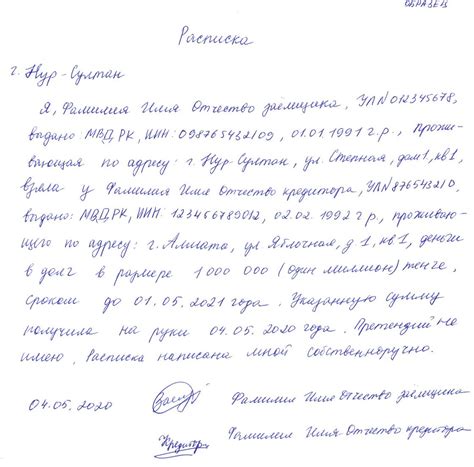 ОБРАЗЕЦ
Расписка
г. Нур-Султан
Я, Фамилия Имя Отчество заёмщика, УЛN012345678,
выдано: МВД, РК, ИИН: 098765432109, 01.01 1991 г.р., прожи-
вающая по адресу: г. Нур-Султан, ул. Степная, дом1, кв1,
взяла у Фамилия Имя Отчество кредитора, УЛN876543210,
выдано: МВД, РК, ИИН: 123456789012, 02.02. 1992 г р., проживаю-
щего по адресу: г. Алмата, ул Яблочная, д 1, кв 1, деньги
в долг в размере 1 000 000 (один миллион) тенге,
сроком до 01.05.2021 года. Указанную сумму
получила на руки 04.05.2020 года. Претензий не
имею. Расписка написана мной собственноручно.
04.05.2020 Заемщ Фамилия Имя Отчество заемщика
Кредитор Фамилия Имя Отчество кредитора